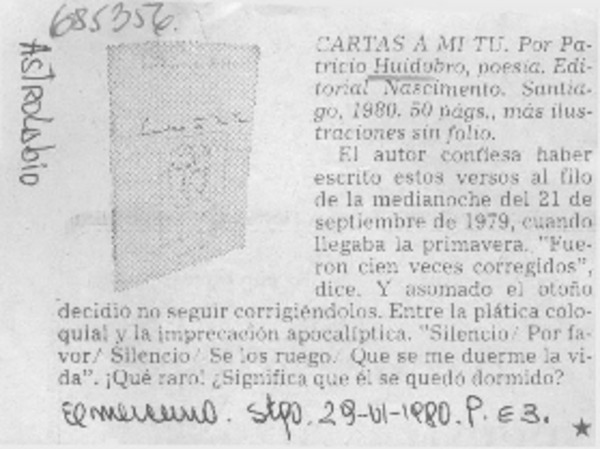 685356.
Astrolabio
CARTAS A MI TU. Por Pa-
tricio Huidobro, poesía. Edi-
torial Nascimento. Santia-
go, 1980. 50 págs., más ilus-
traciones sin folio.
El autor confiesa haber
escrito estos versos al filo
de la medianoche del 21 de
septiembre de 1979, cuando
llegaba la primavera. "Fue-
ron cien veces corregidos",
dice. Y asomado el otoño
decidió no seguir corrigiéndolos. Entre la plática colo-
quial y la imprecación apocalíptica. "Silencio/ Por fa-
vor/ Silencio/ Se los ruego/ Que se me duerme la vi-
da". ¡Qué raro! ¿Significa que él se quedó dormido?
El mercurio. Stgo. 29-VI-1980. P. E 3.